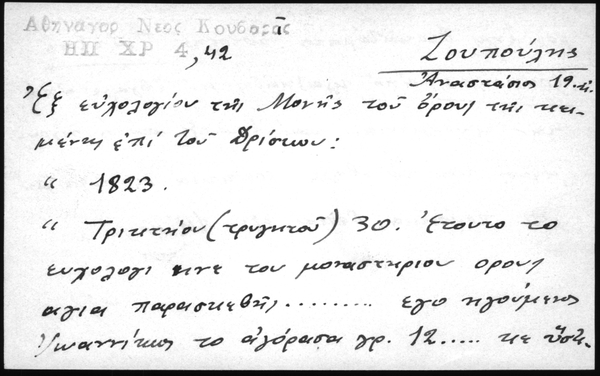 Αθηναγορ Νεος Κουβαρᾶς
ΗΠ ΧΡ 4, 42
Ζουπούλης
Ἀναστάσιος 19.
Ἐξ εὐχολογίου τῆς Μονῆς τοῦ ὄρους τῆς κει-
μένης ἐπὶ τοῦ Δρίσκου:
“ 1823.
“ Τριτητίου (τρυγητοῦ) 30. Ἐτουτο το
ευχολογι ινε του μοναστηριου ορους
αγια παρασκεβῆς......... εγο ηγούμενος
Ἰωαννίκιος το αἰγόρασα γρ. 12..... κε ὕστε-